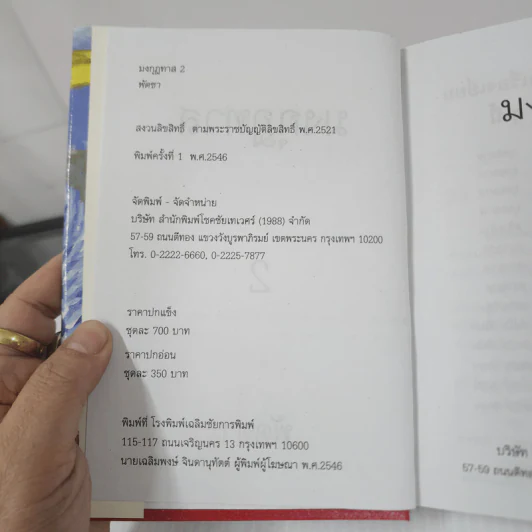 มงกุฎทาส 2
พัดชา
สงวนลิขสิทธิ์ ตามพระราชบัญญัติลิขสิทธิ์ พ.ศ.2521
พิมพ์ครั้งที่ 1 พ.ศ.2546
จัดพิมพ์ - จัดจำหน่าย
บริษัท สำนักพิมพ์โชคชัยเทเวศร์ (1988) จำกัด
57-59 ถนนตีทอง แขวงวังบูรพาภิรมย์ เขตพระนคร กรุงเทพฯ 10200
โทร. 0-2222-6660, 0-2225-7877
ราคาปกแข็ง
ชุดละ 700 บาท
ราคาปกอ่อน
ชุดละ 350 บาท
พิมพ์ที่ โรงพิมพ์เฉลิมชัยการพิมพ์
115-117 ถนนเจริญนคร 13 กรุงเทพฯ 10600
นายเฉลิมพงษ์ จินดานุทัตต์ ผู้พิมพ์ผู้โฆษณา พ.ศ.2546
บริษัท
57-59 ถนนตีท